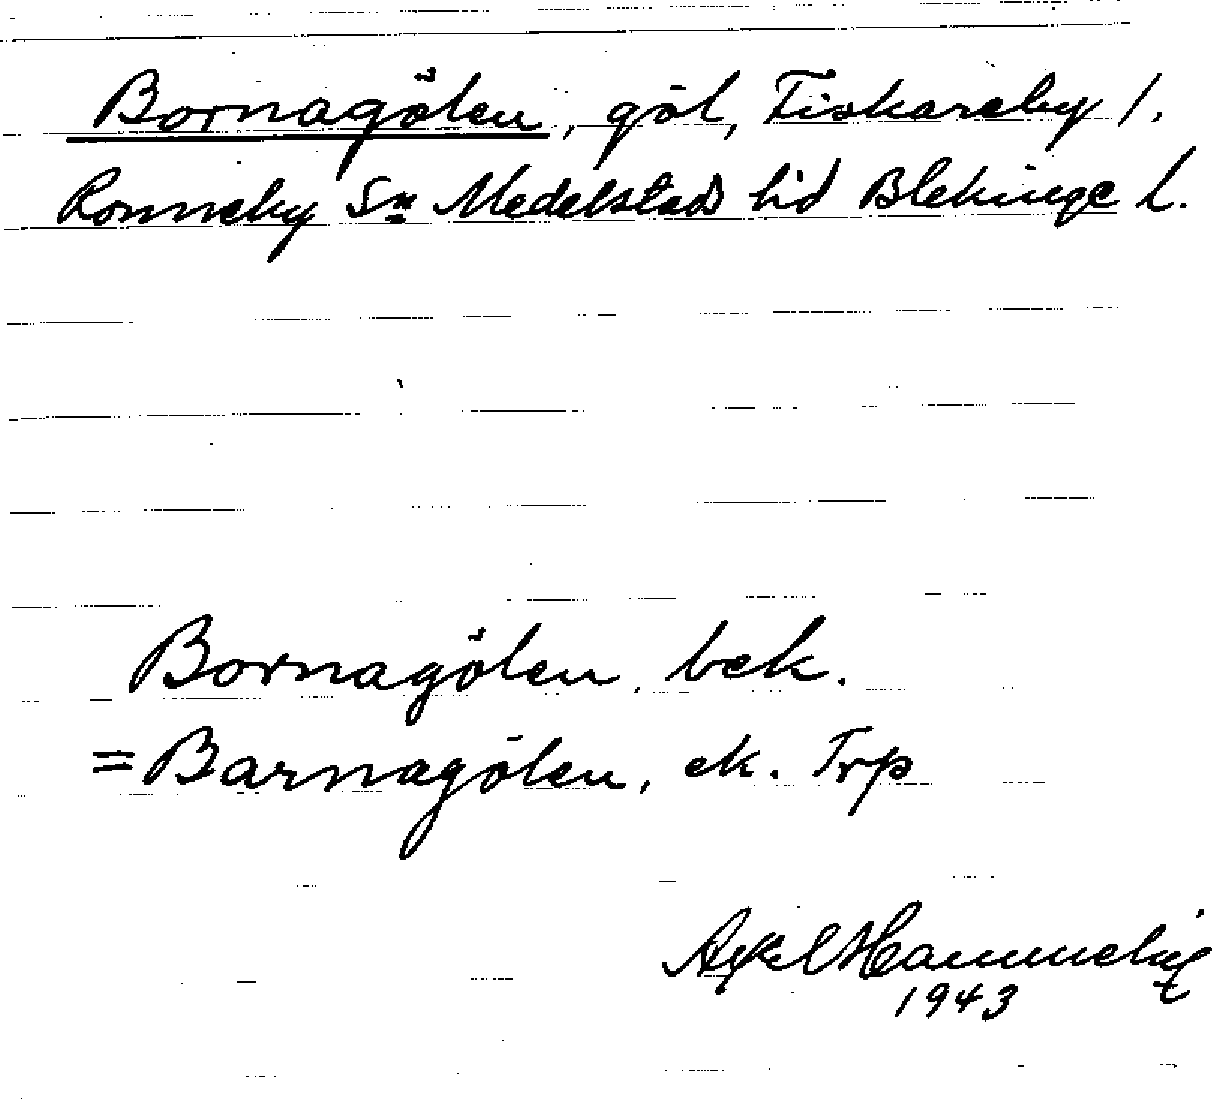 Bornagölen, göl, Fiskareby /.
Ronneby Sn Medelstads hd Blekinge l.
Bornagölen, bek.
=Barnagölen, ek. Trp
Axel
1943